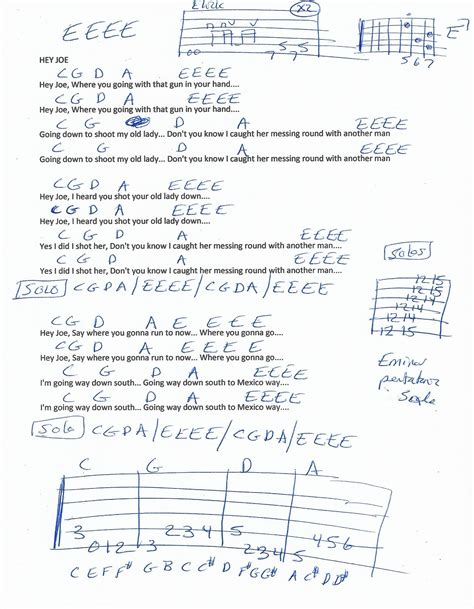 E lick
X2
EEEE
00
7 5 7 5
E7
5 6 7
HEY JOE
C G D A EEEE
Hey Joe, Where you going with that gun in your hand....
C G D A EEEE
Hey Joe, Where you going with that gun in your hand....
C G D A EEEE
Going down to shoot my old lady... Don't you know I caught her messing round with another man
C G D A EEEE
Going down to shoot my old lady... Don't you know I caught her messing round with another man
C G D A EEEE
Hey Joe, I heard you shot your old lady down....
C G D A EEEE
Hey Joe, I heard you shot your old lady down....
C G D A EEEE
Yes I did I shot her, Don't you know I caught her messing round with another man....
C G D A EEEE
Yes I did I shot her, Don't you know I caught her messing round with another man....
SOLO CGDA/EEEE/CGDA/EEEE
SOLOS
12 15
12 15
12 14
12 14
12 14
12 15
E minor
pentatonic
Scale
C G D A E EEE
Hey Joe, Say where you gonna run to now... Where you gonna go....
C G D A E E E E
Hey Joe, Say where you gonna run to now... Where you gonna go....
C G D A EEEE
I'm going way down south... Going way down south to Mexico way....
C G D A EEEE
I'm going way down south... Going way down south to Mexico way....
Solo CGDA/EEEE/CGDA/EEEE
C G D A
3 2 3 4 5 4 5 6
0 1 2 3 2 3 4 5
C E F F# G B C C# D F# G G# A C# D D#